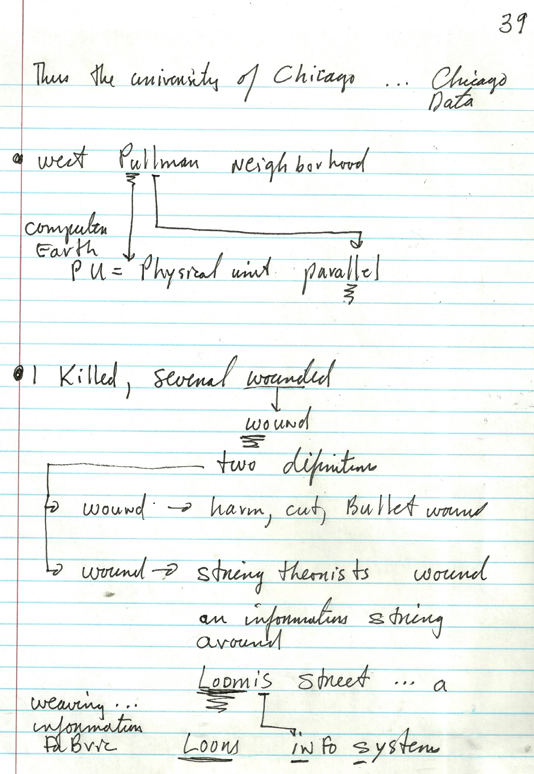 39
Thus the university of Chicago ... Chicago
Data
• west Pullman Neighborhood
computer
Earth
PU = Physical unit parallel
• 1 Killed, several wounded
wound
two definitions
wound → harm, cut, Bullet wound
wound → string theorists wound
an information string
around
Loomis street ... a
weaving ...
information
FaBric Looms info system